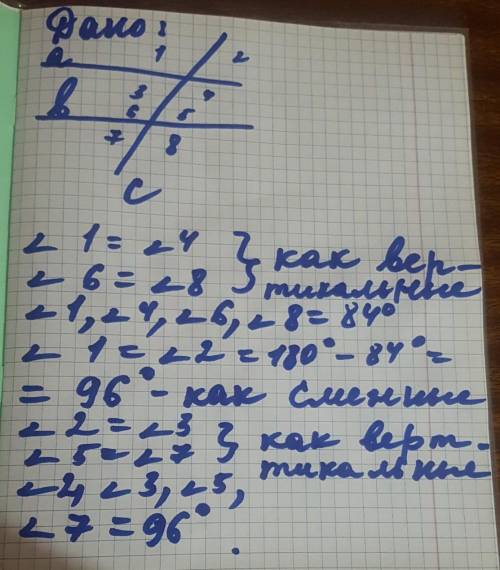 Дано:
a 1 2
b 3 4
6 5
7 8
c
∠1 = ∠4 } как вер-
∠6 = ∠8 } тикальные
∠1, ∠4, ∠6, ∠8 = 84°
∠1 = ∠2 = 180° - 84° =
= 96° - как сменные
∠2 = ∠3 } как верт-
∠5 = ∠7 } тикальные
∠2, ∠3, ∠5,
∠7 = 96°.